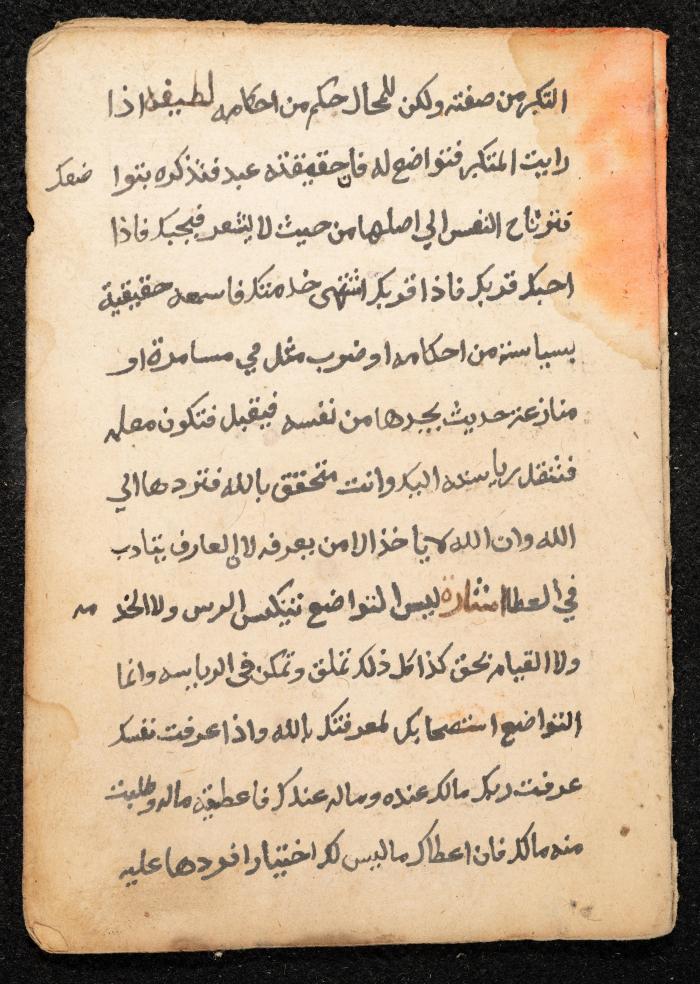 التكبر من صفته ولكن للمحال حكم من احكامه لطيفة اذا
رايت المتكبر فتواضع له فان حقيقته عبد فتذكره بتوا ضعك
فترتاح النفس الي اصلها من حيث لا يشعر فيحبك فاذا
احبك قربك فاذا قربك اشتهى خدمتك فاسمعه حقيقية
بسياسة من احكامه او ضرب مثل في مسامرة او
منازعة حديث يجدها من نفسه فيقبل فتكون معلمه
فتنتقل رياسته اليك وانت متحقق بالله فتردها الي
الله وان الله لا ياخذ الا من يعرفه لان العارف يتادب
في العطا اشارة ليس التواضع تنكيس الرس ولا الخد مه
ولا القيام بحق كذا كل ذلك تملق وتمكن في الرياسه وانما
التواضع استصحابك لمعرفتك بالله واذا عرفت نفسك
عرفت ربك مالك عنده وماله عندك فاعطيته ماله وطلبت
منه مالك فان اعطاك ما ليس لك اختيارا فردها عليه